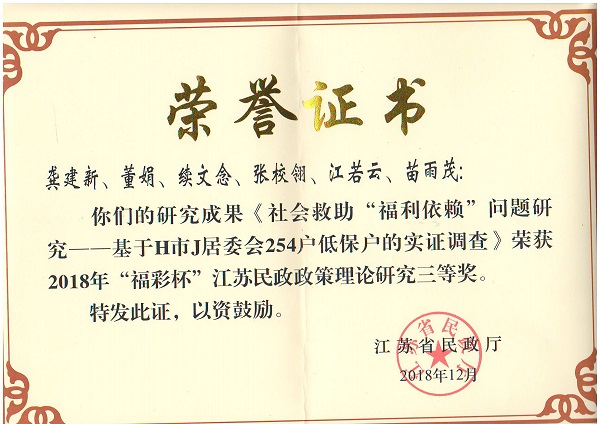 荣誉证书
龚建新、董娟、续文念、张校翎、江若云、苗雨茂：
你们的研究成果《社会救助“福利依赖”问题研
究——基于H市J居委会254户低保户的实证调查》荣获
2018年“福彩杯”江苏民政政策理论研究三等奖。
特发此证，以资鼓励。
江苏省民政厅
江苏省民政厅
2018年12月